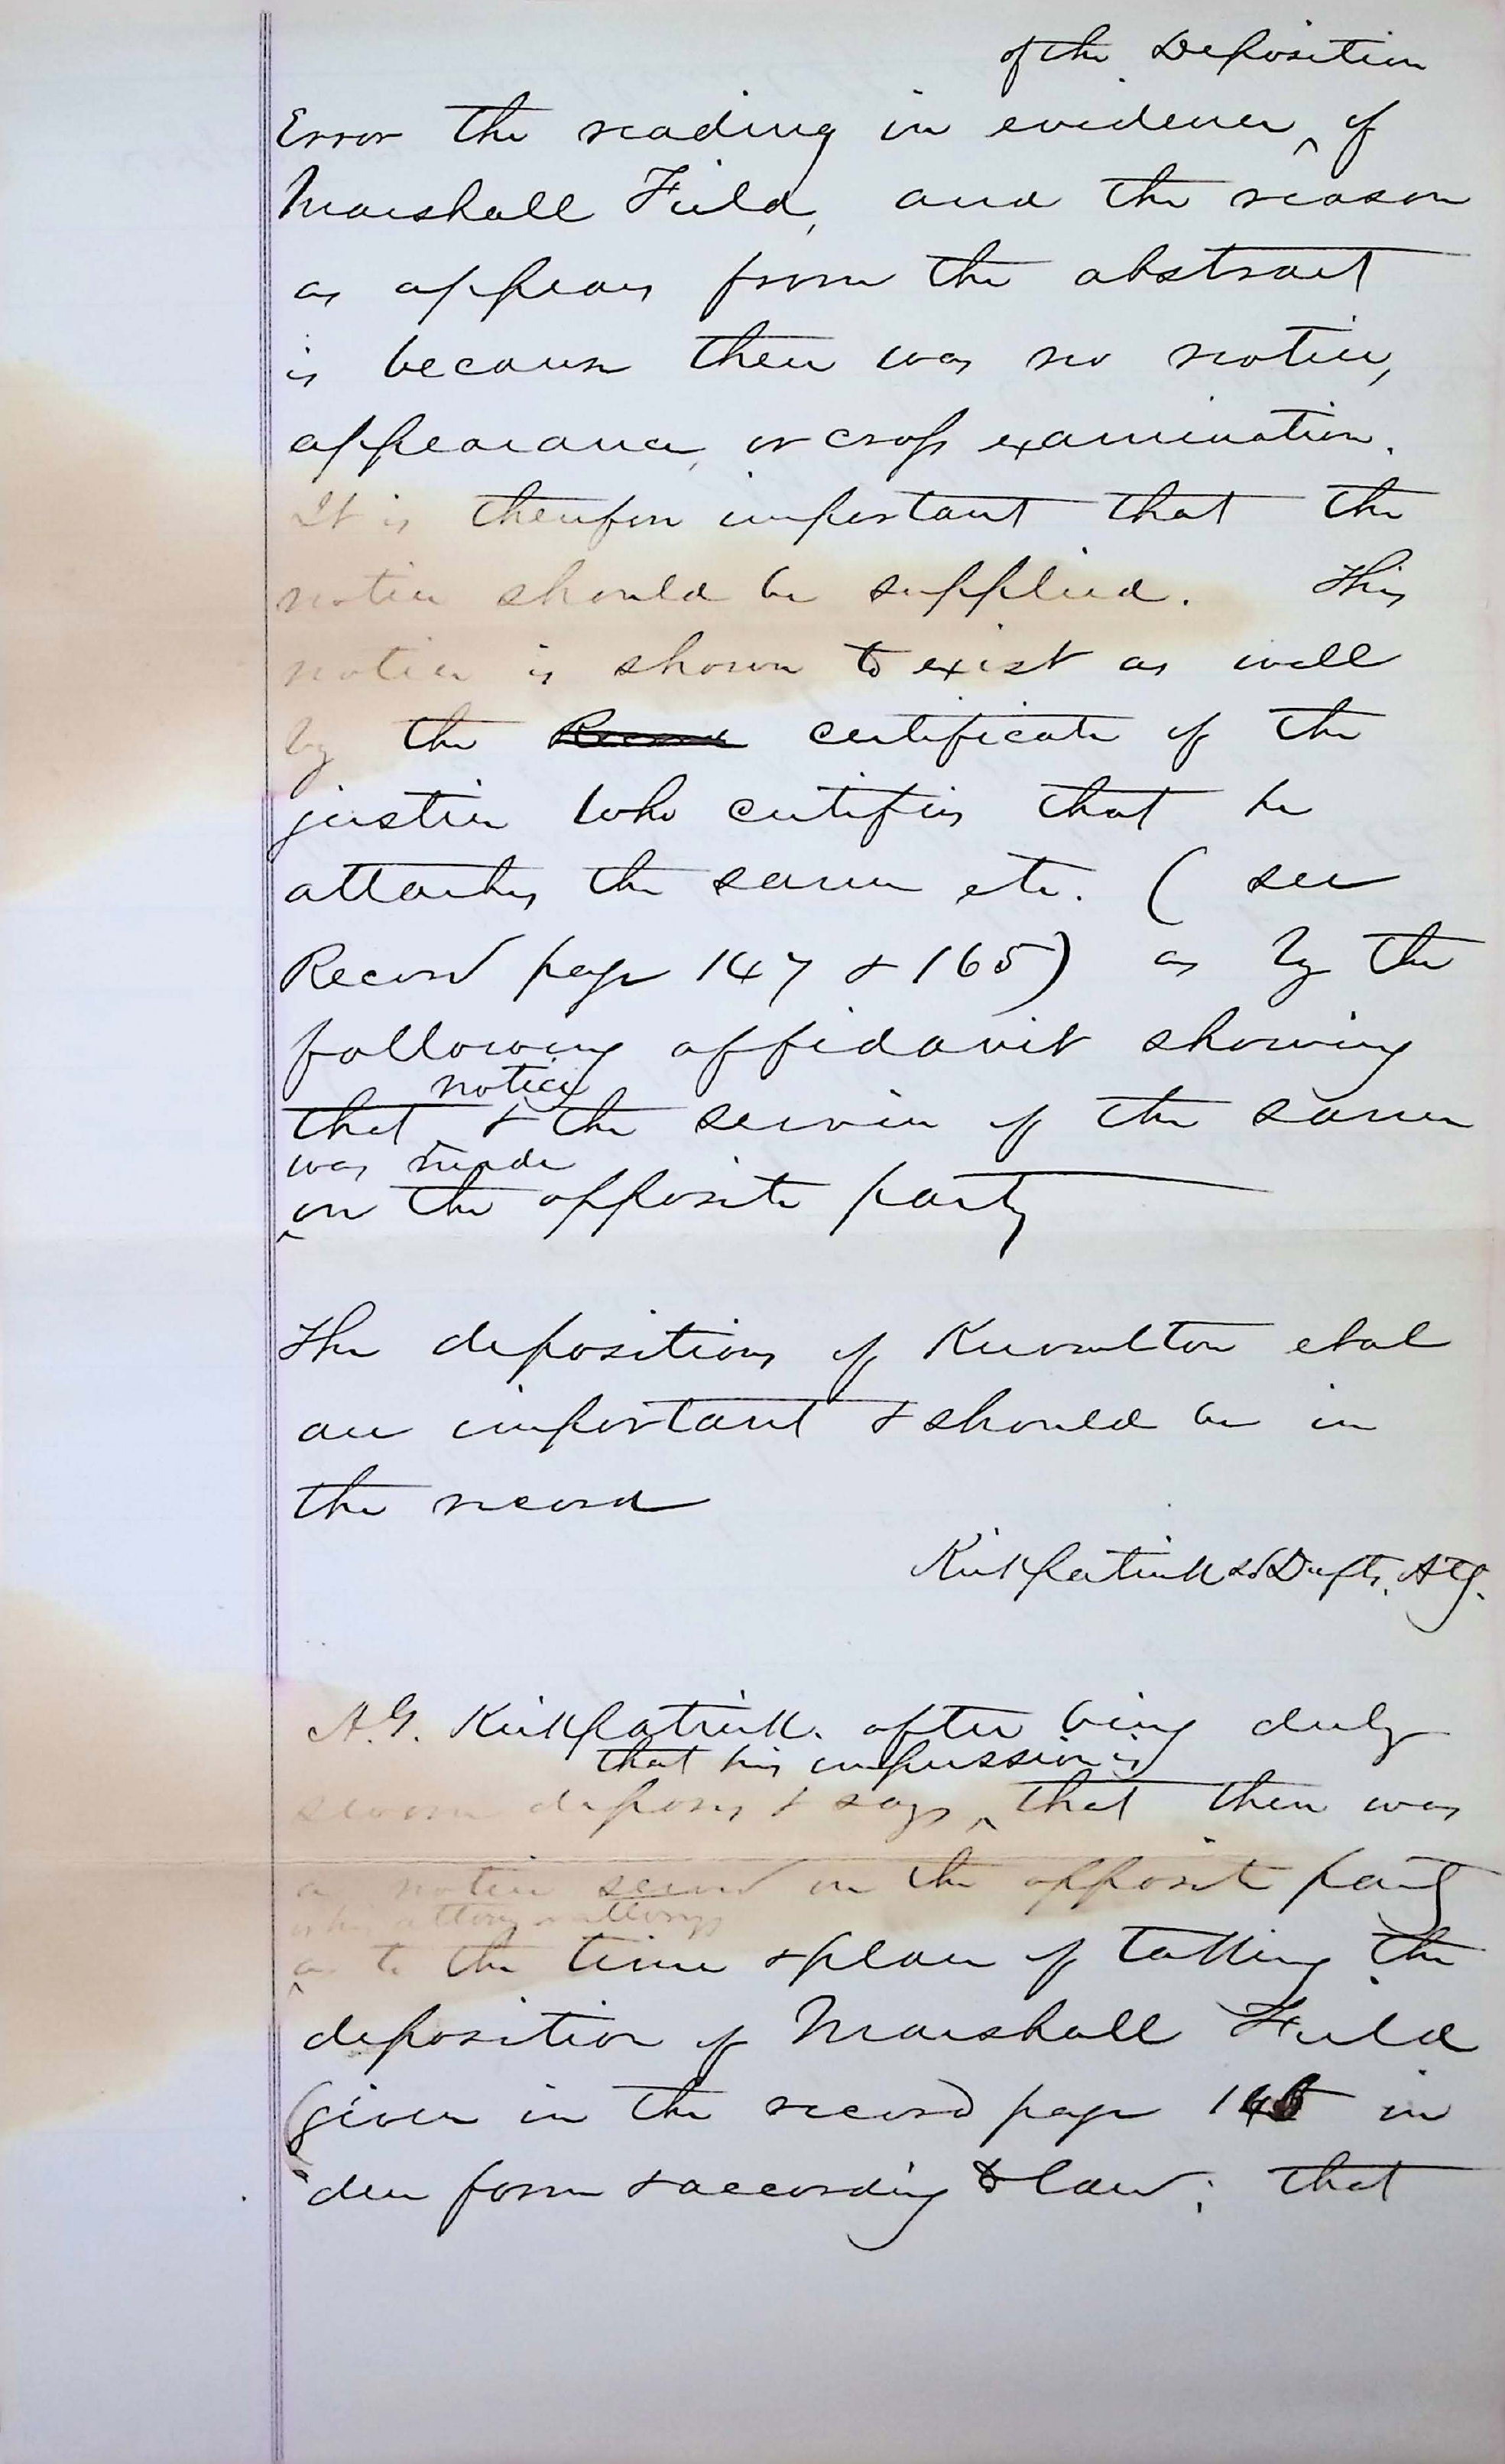 of the Deposition
Error the reading in evidence ^ of
Marshall Field, and the reason
as appears from the abstract
is because there was no notice,
appearance, or cross examination.
It is therefore important that the
notice should be supplied. This
notice is shown to exist as well
by the Record certificate of the
justice who certifies that he
attaches the same etc. ( see
Record page 147 & 165) as by the
following affidavit showing
notice
that & the service of the same
was made
^ on the opposite party
The depositions of et al
are important & should be in
the record
Kirkpatrick Defts. Atty.
A.G. Kirkpatrick. after being duly
that his impression is
sworn deposes & says ^ that there was
a notice served on the opposite party
or his attorney or attorneys
^ as to the time & place of taking the
deposition of Marshall Field
(given in the record page in
due form & according to law; that